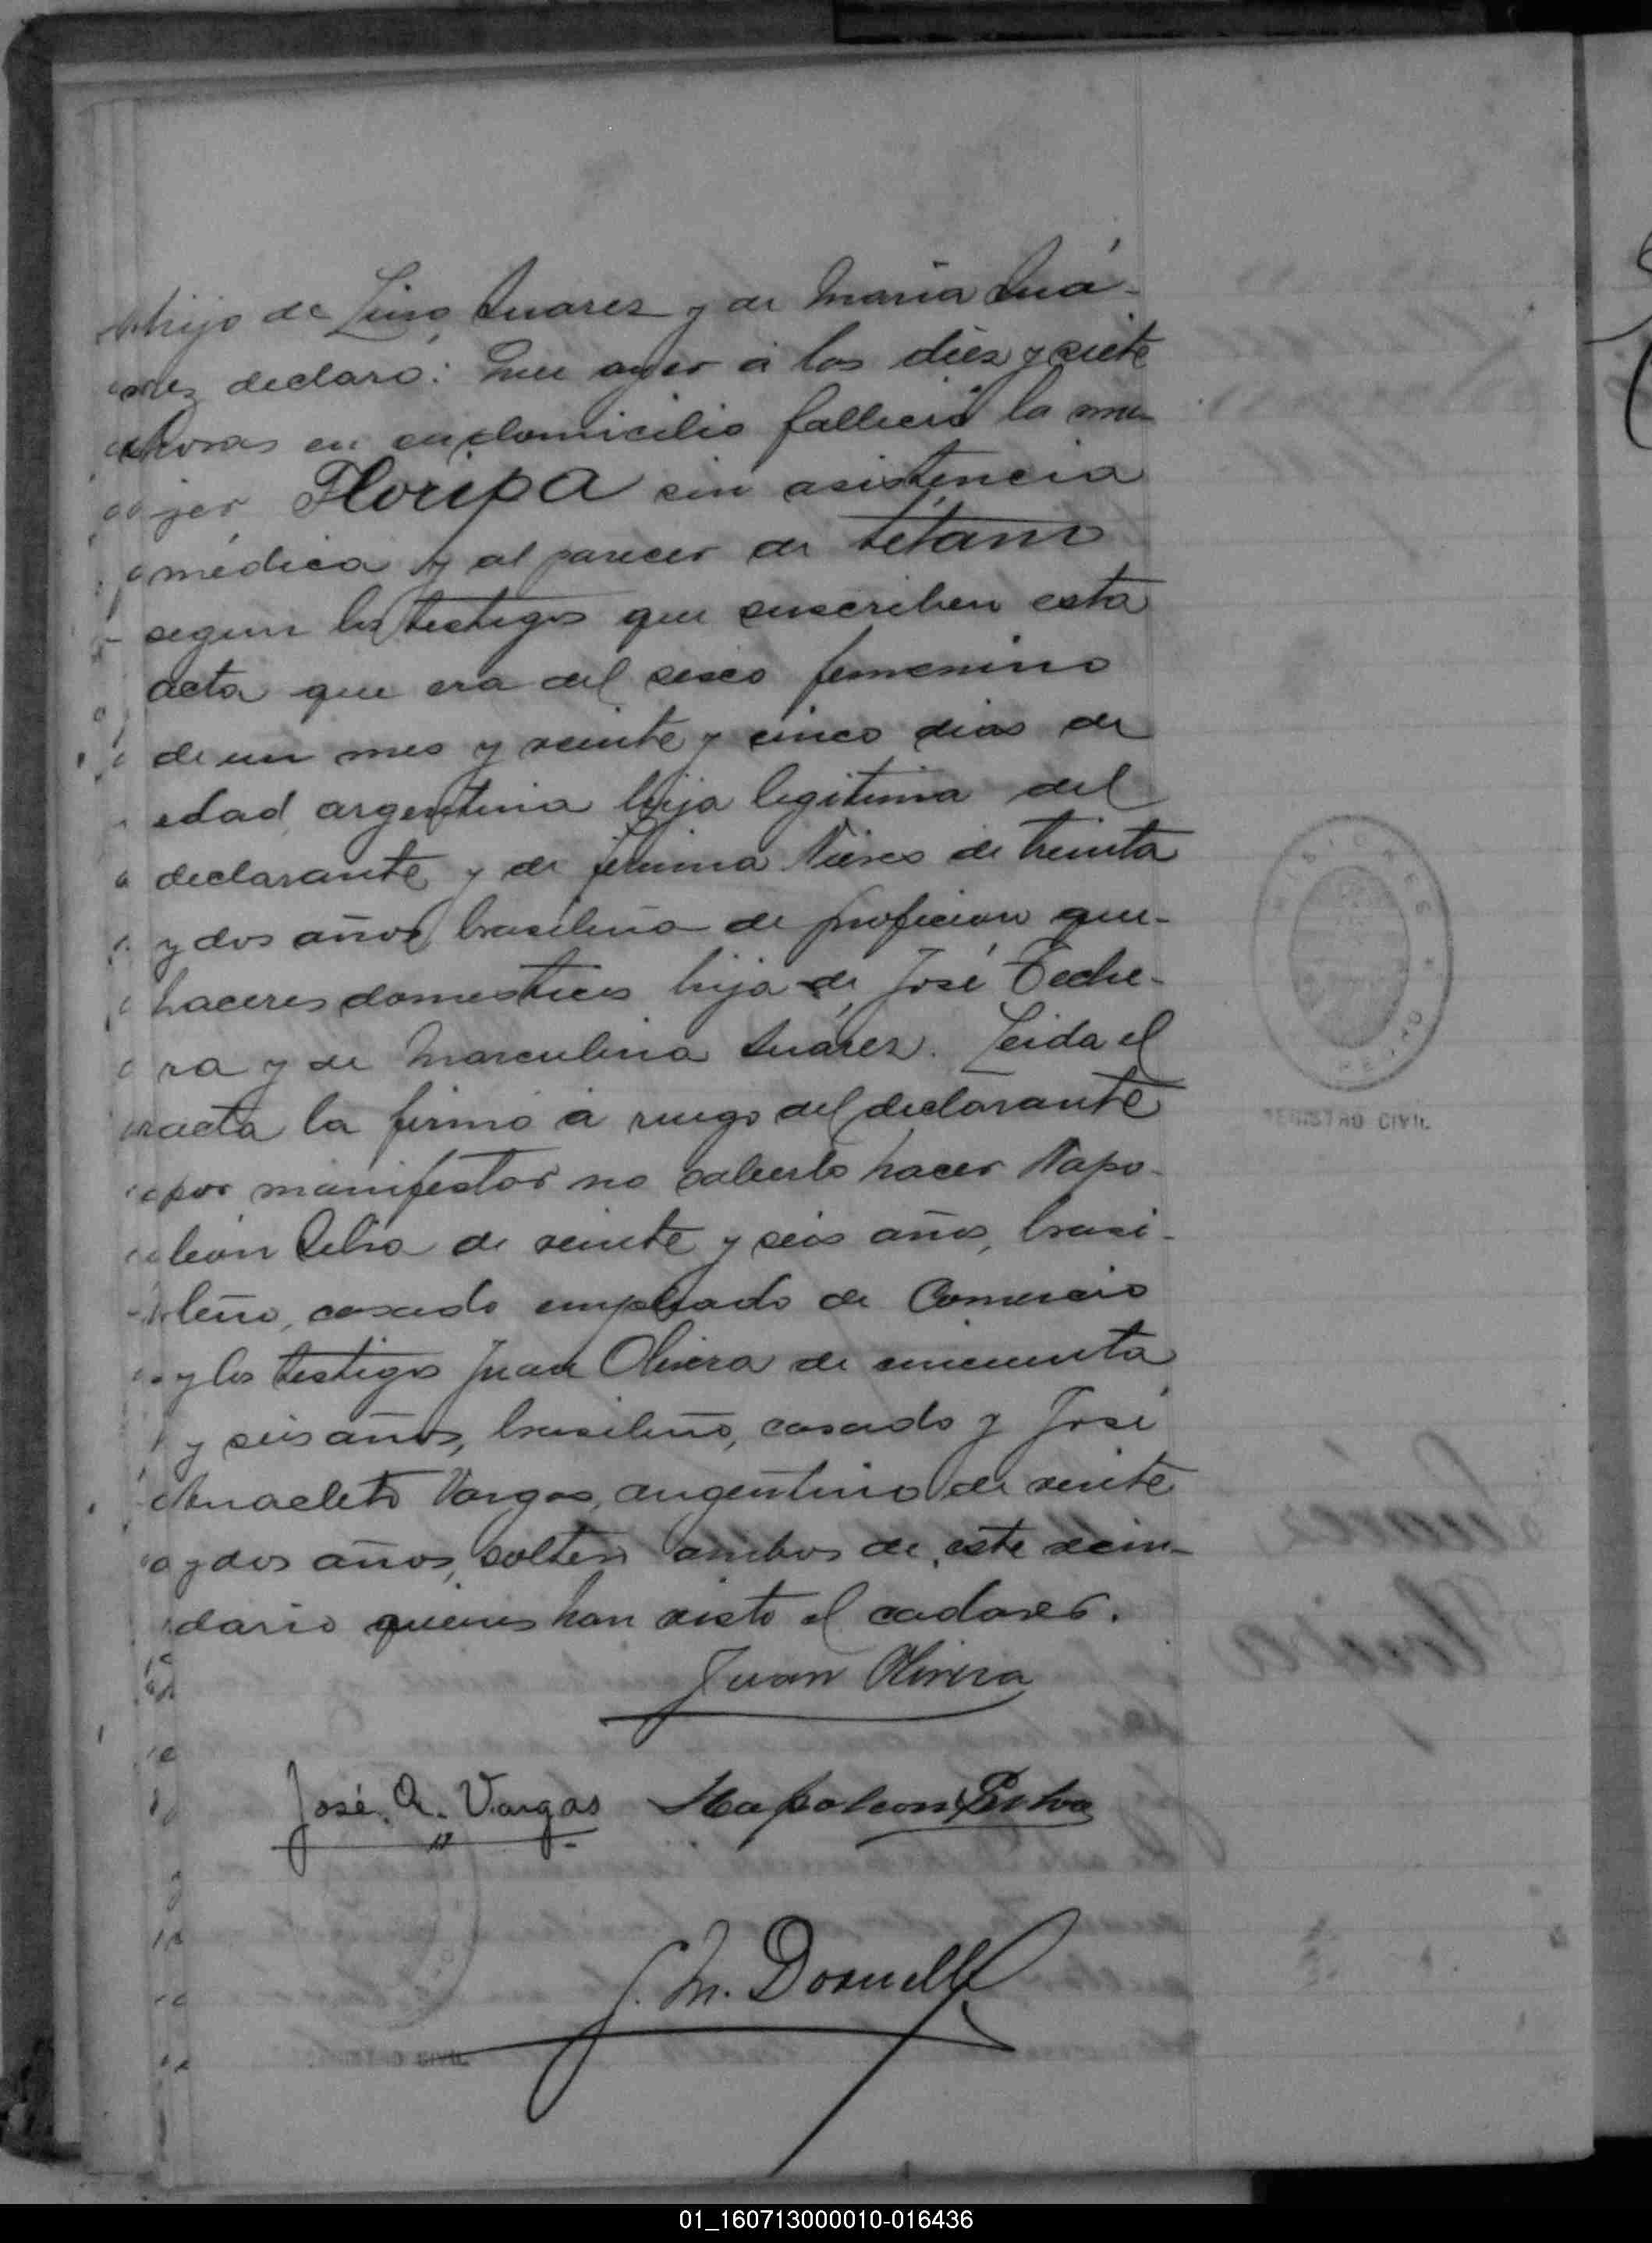 hijo de Lino Suarez y de Maria Suá-
rez declaró: Que ayer á las diez y siete
horas en su domicilio falleció la mu-
jer Floripa sin asistencia
médica y al parecer de tétano
segun los testigos que suscriben esta
acta que era del sexo femenino
de un mes y veinte y cinco dias de
edad, argentina hija legitima del
declarante y de Nieves de treinta
y dos años, brasileña de profecion que-
haceres domesticos hija de José Teche-
ra y de Marculina Suárez. Leida el
acta la firmó á ruego del declarante
por manifestar no saberlo hacer Napo-
leon Silva de veinte y seis años, brasi-
leño, casado empleado de Comercio
y los testigos Juan Olivera de cincuenta
y seis años, brasileño, casado y José
Anacleto Vargas, argentino de veinte
y dos años, soltero ambos de este vecin-
dario quienes han visto el cadaver.
Juan Olivera
José A. Vargas Napoleon Silva
J. M. Dornell
REGISTRO CIVIL
01_160713000010-016436